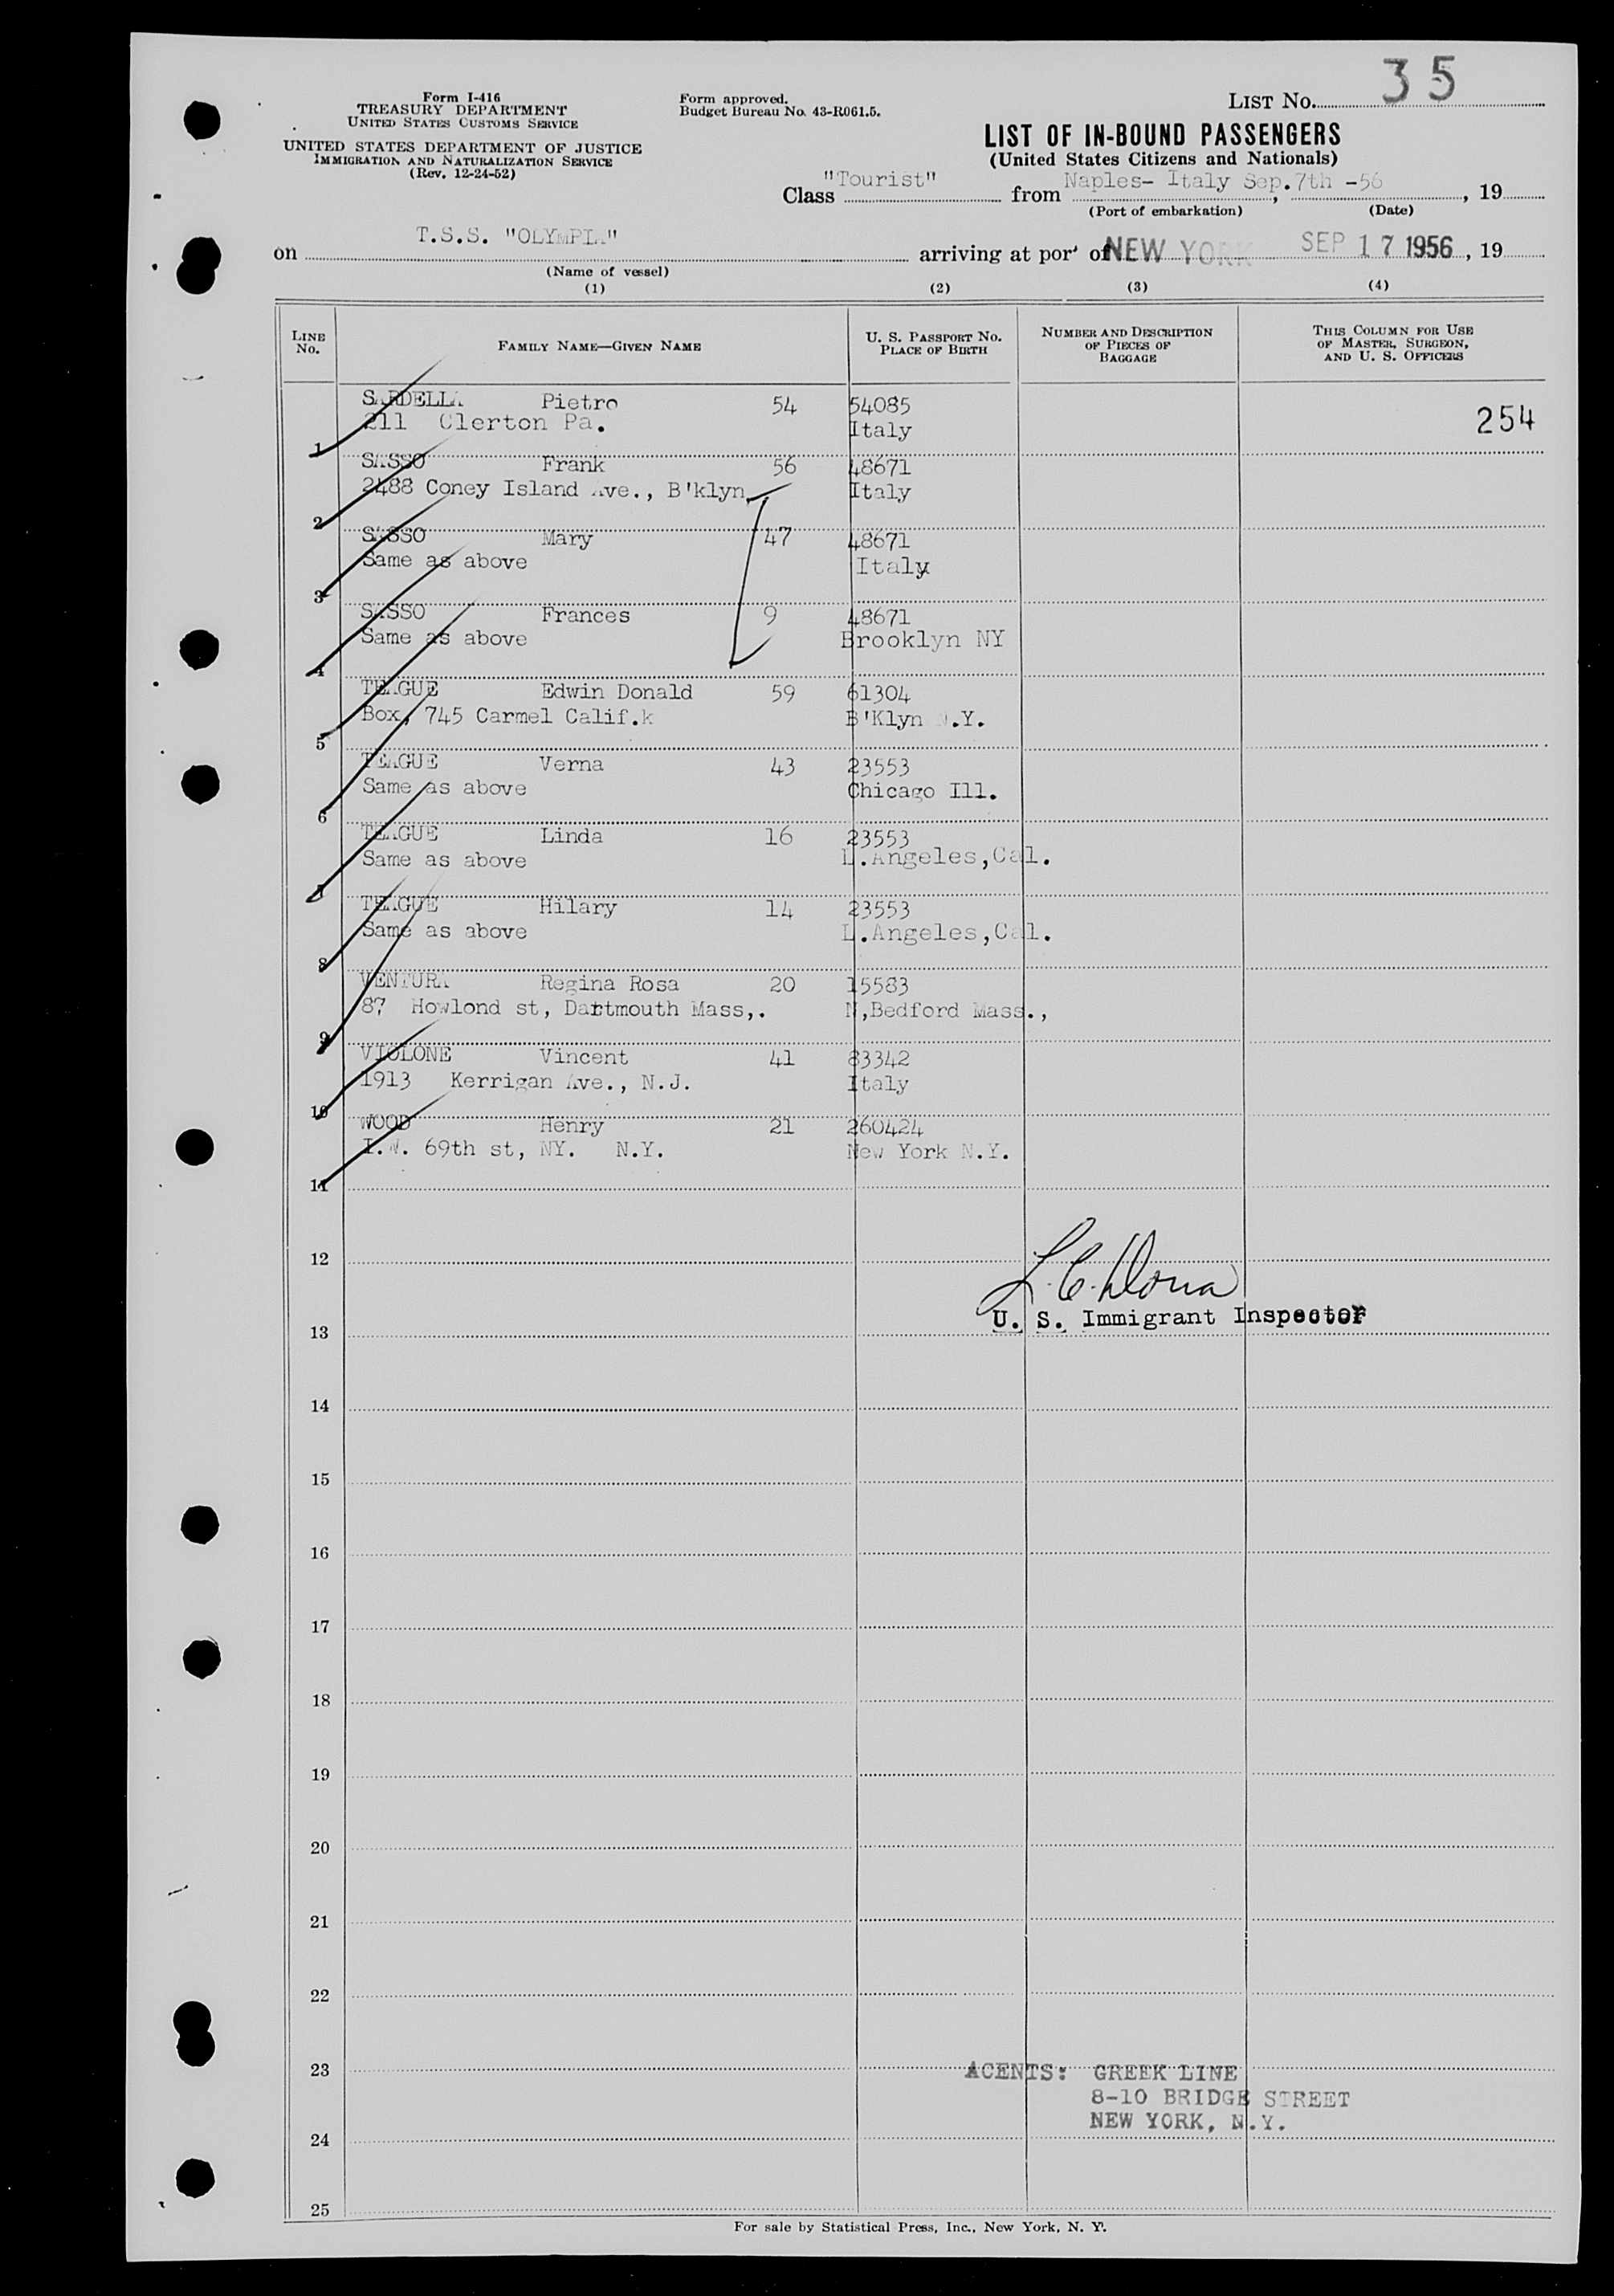 35
Form I-416
TREASURY DEPARTMENT
UNITED STATES CUSTOMS SERVICE
UNITED STATES DEPARTMENT OF JUSTICE
IMMIGRATION AND NATURALIZATION SERVICE
(Rev. 12-24-52)
Form approved.
Budget Bureau No. 43-R061.5.
LIST No.
LIST OF IN-BOUND PASSENGERS
(United States Citizens and Nationals)
Class "Tourist" from Naples- Italy Sep.7th -56, 19
(Port of embarkation) (Date)
on T.S.S. "OLYMPIA" arriving at port of NEW YORK SEP 17 1956, 19
(Name of vessel)
(1) (2) (3) (4)
LINE No. FAMILY NAME—GIVEN NAME U. S. PASSPORT NO. PLACE OF BIRTH NUMBER AND DESCRIPTION OF PIECES OF BAGGAGE THIS COLUMN FOR USE OF MASTER, SURGEON, AND U. S. OFFICERS
SARDELLA Pietro 54 54085
1 211 Clerton Pa. Italy 254
SASSO Frank 56 48671
2 2488 Coney Island Ave., B'klyn Italy
SASSO Mary 47 48671
3 Same as above Italy
SASSO Frances 9 48671
4 Same as above Brooklyn NY
TEAGUE Edwin Donald 59 61304
5 Box, 745 Carmel Calif.k B'Klyn N.Y.
TEAGUE Verna 43 23553
6 Same as above Chicago Ill.
TEAGUE Linda 16 23553
7 Same as above L.Angeles,Cal.
TEAGUE Hilary 14 23553
8 Same as above L.Angeles,Cal.
VENTURA Regina Rosa 20 15583
9 87 Howlond st, Dartmouth Mass,. N,Bedford Mass.,
VIOLONE Vincent 41 83342
10 1913 Kerrigan Ave., N.J. Italy
WOOD Henry 21 260424
11 I.W. 69th st, NY. N.Y. New York N.Y.
12
L. C.
U. S. Immigrant Inspector
13
14
15
16
17
18
19
20
21
22
23 AGENTS: GREEK LINE
8-10 BRIDGE STREET
NEW YORK, N.Y.
24
25
For sale by Statistical Press, Inc., New York, N. Y.